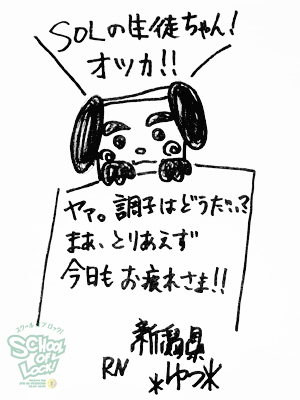 SOLの生徒ちゃん!
オツカ!!
ヤァ。調子はどうだい?
まぁ、とりあえず
今日もお疲れさま!!
新潟県
RN *ゆつ*
スクールオブロック!
SCHOOL
OF
LOCK!